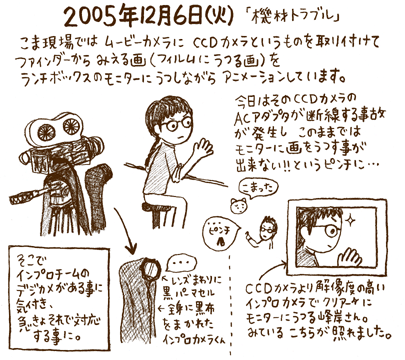 2005年12月6日(火)「機材トラブル」
こま現場では ムービーカメラに CCDカメラというものを取り付けて
ファインダーから みえる画(フィルムに うつる画)を
ランチボックスのモニターにうつしながら アニメーションしています。
今日はそのCCDカメラの
ACアダプタが断線する事故
が発生し このままでは
モニターに画をうつす事が
出来ない!!というピンチに…
こまった
…ピンチ
そこで
インプロチームの
デジカメがある事に
気付き、
急きょそれで対応
する事に。
…
←レンズまわりに
黒パーマセル
←全身に黒布
をまかれた
インプロカメラくん
CCDカメラより解像度の高い
インプロカメラで クリアーに
モニターにうつる峰岸さん。
みている こちらが 照れました。